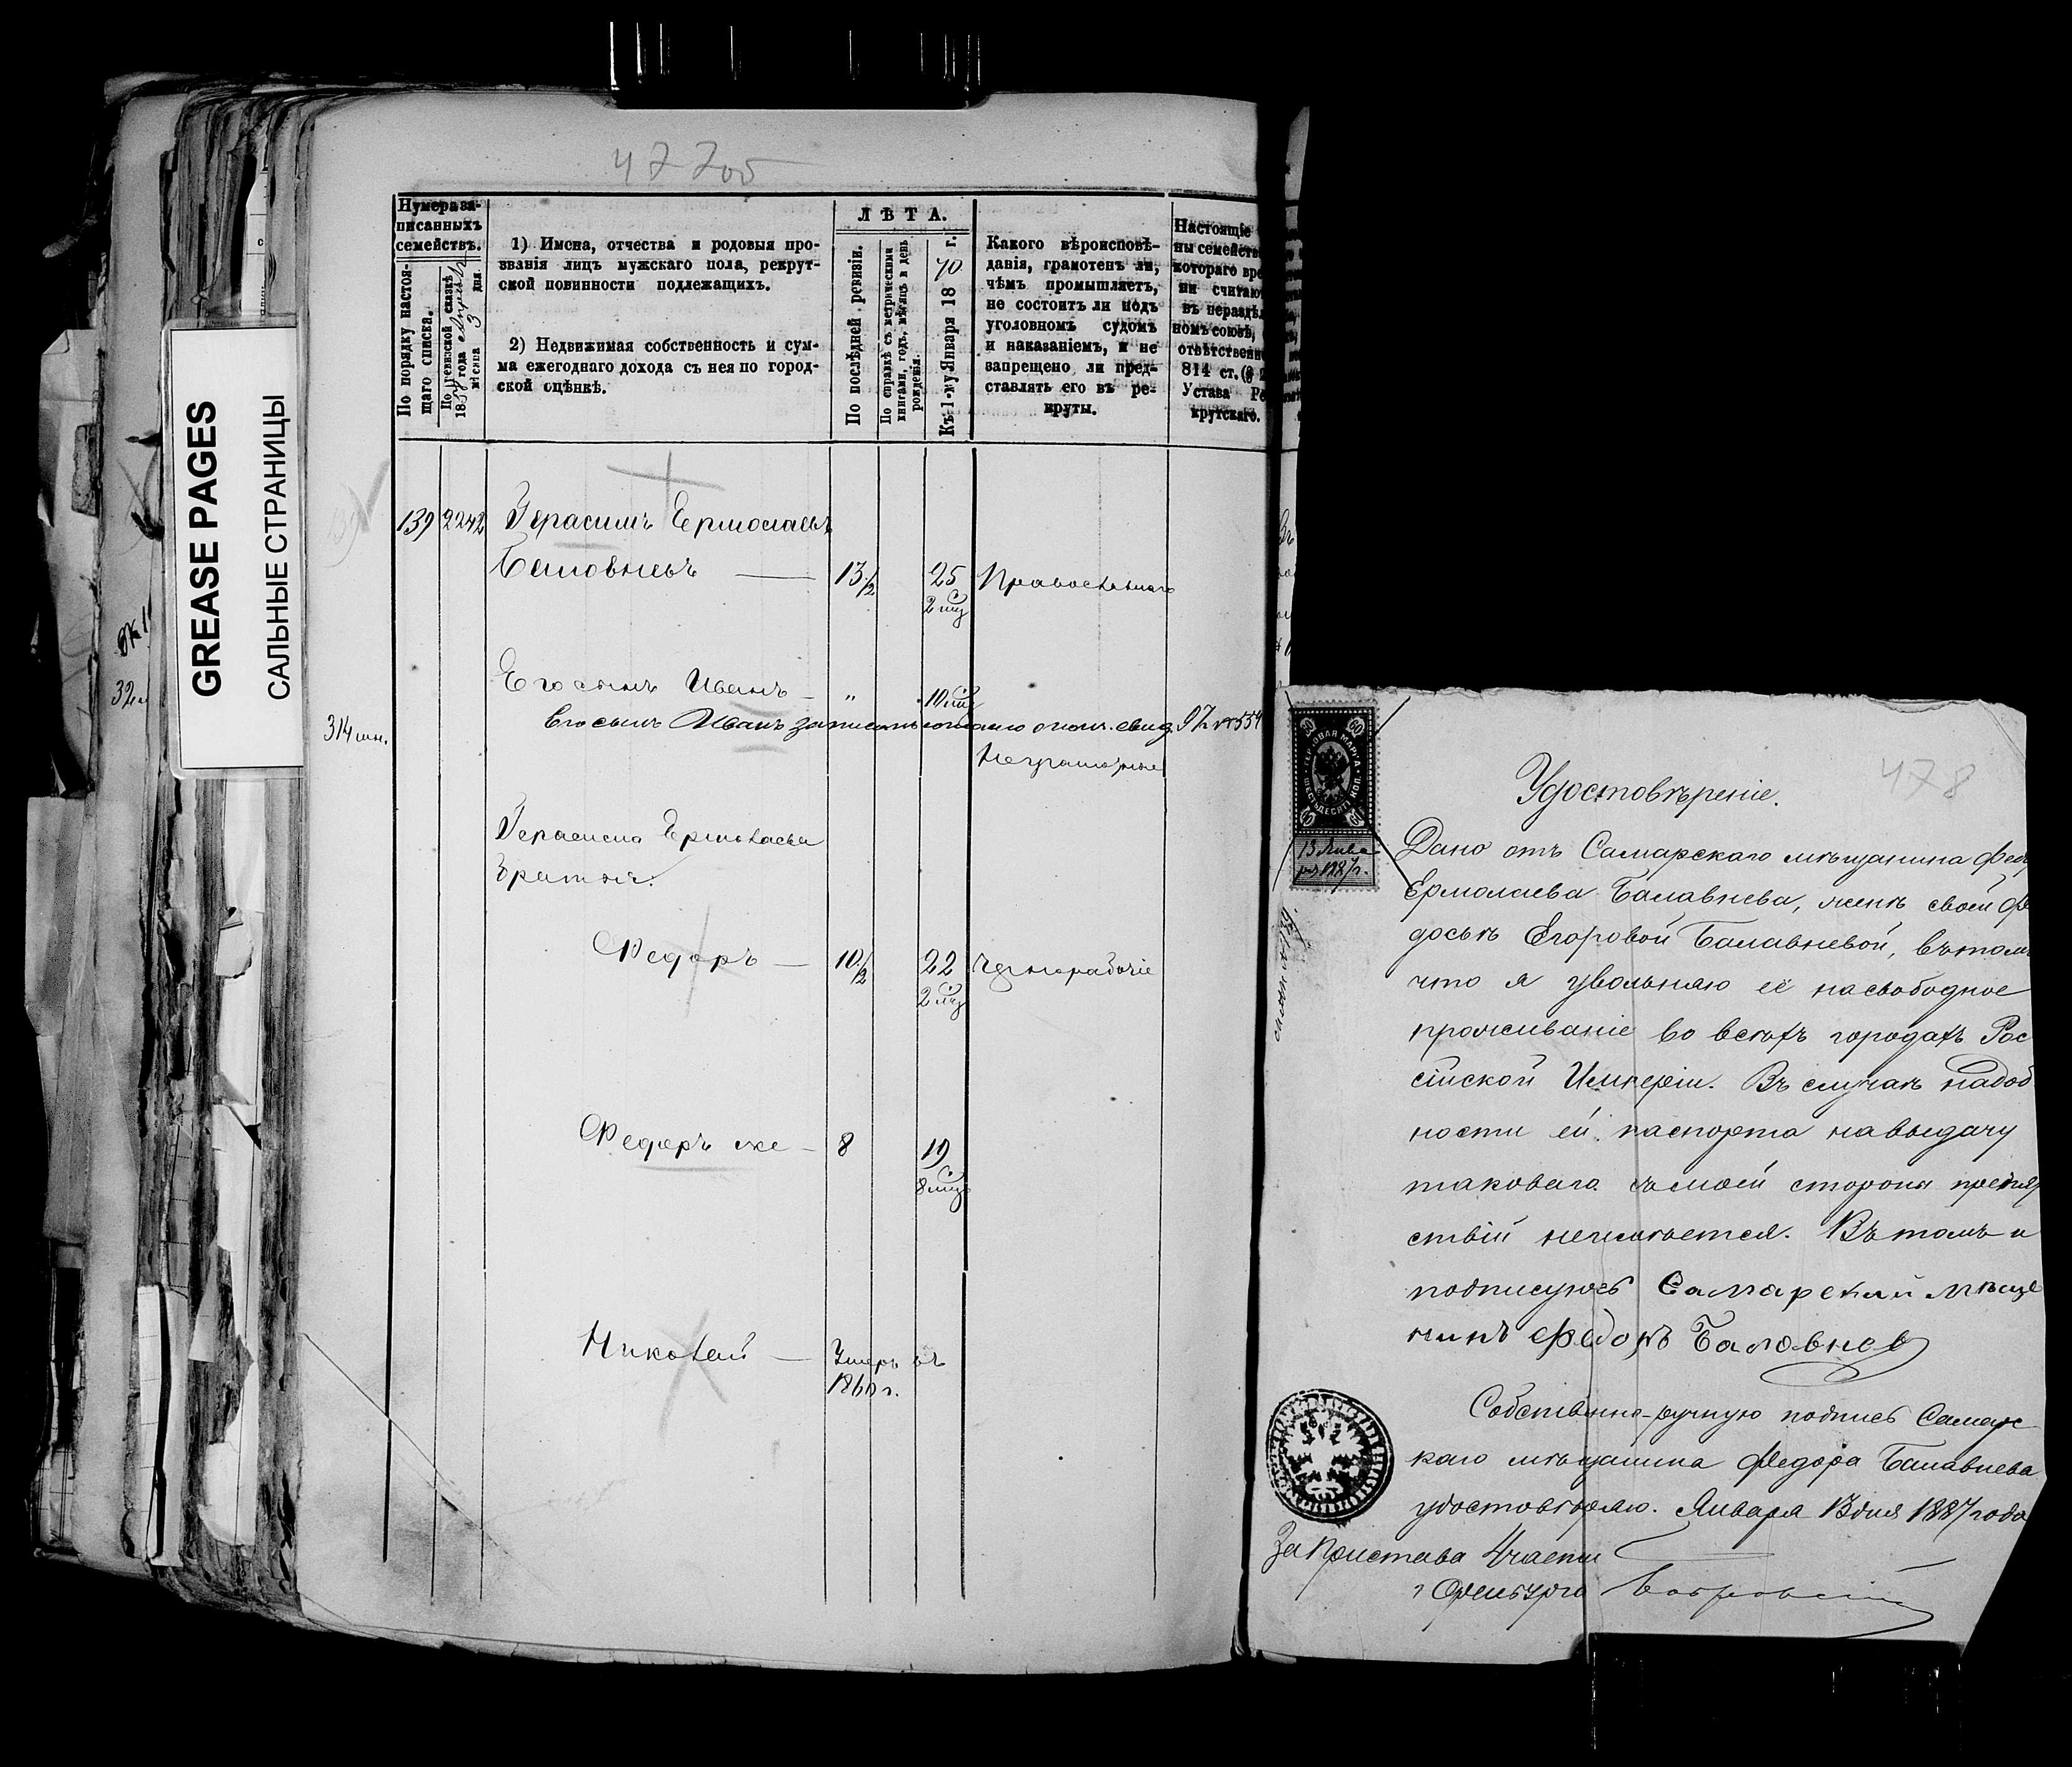 477об
GREASE PAGES
САЛЬНЫЕ СТРАНИЦЫ
Нумера за-
писанныхъ
семействъ.
По порядку настоя-
щаго списка.
По ревизской сказкѣ
185 года
мѣсяца 3 дня.
1) Имена, отчества и родовыя про-
званія лицъ мужскаго пола, рекрут-
ской повинности подлежащихъ.
2) Недвижимая собственность и сум-
ма ежегоднаго дохода съ нея по город-
ской оцѣнкѣ.
ЛѢТА.
По послѣдней ревизіи.
По справкѣ съ метрическими
книгами, годъ, мѣсяцъ и день
рожденія.
Къ 1-му Января 1870 г.
Какого вѣроисповѣ-
данія, грамотенъ ли,
чѣмъ промышляетъ,
не состоитъ ли подъ
уголовномъ судомъ
и наказаніемъ, и не
запрещено ли пред-
ставлять его въ ре-
круты.
Настоящіе
ны семейств
котораго вре
ни считаю
въ нераздѣл
номъ союзѣ,
отвѣтственн
814 ст. (§ 2
Устава Ре
крутскаго.
139 2242 Герасимъ Ермолаевъ
Баловневъ — 13 1/2 25 Православнаго
2 мц
Его сынъ Иванъ — " 10 мц
314 шн.
Его сынъ Иванъ записанъ 97 № 554
Неграмотные
Герасима Ермолаева
Братья:
Федоръ — 10 1/2 22 Чернорабочіе
2 мц
Федоръ же — 8 19
8 мц
Николай — Умеръ въ
1860 г.
478
ГЕРБОВАЯ МАРКА
ШЕСТЬДЕСЯТЪ КОП.
60 60
13 Янва
ря 1887 г.
Удостовѣреніе.
Дано отъ Самарскаго мѣщанина Федо
Ермолаева Балавнева, женѣ своей Фе
досьѣ Егоровой Балавневой, въ томъ
что я увольняю её на свободное
проживаніе во всѣхъ городахъ Рос
сійской Имперіи. Въ случаѣ надоб
ности ей паспорта на выдачу
таковаго съ моей стороны препят
ствій неимѣется. Въ томъ и
подписуюсь Самарскай мѣще
нинъ Федоръ Баловнов
Собственно-ручную подпись Самарс
каго мѣщанина Федора Балавнева
удостовѣряю. Января 13 дня 1887 года
За Пристава 4 части
г Оренбурга